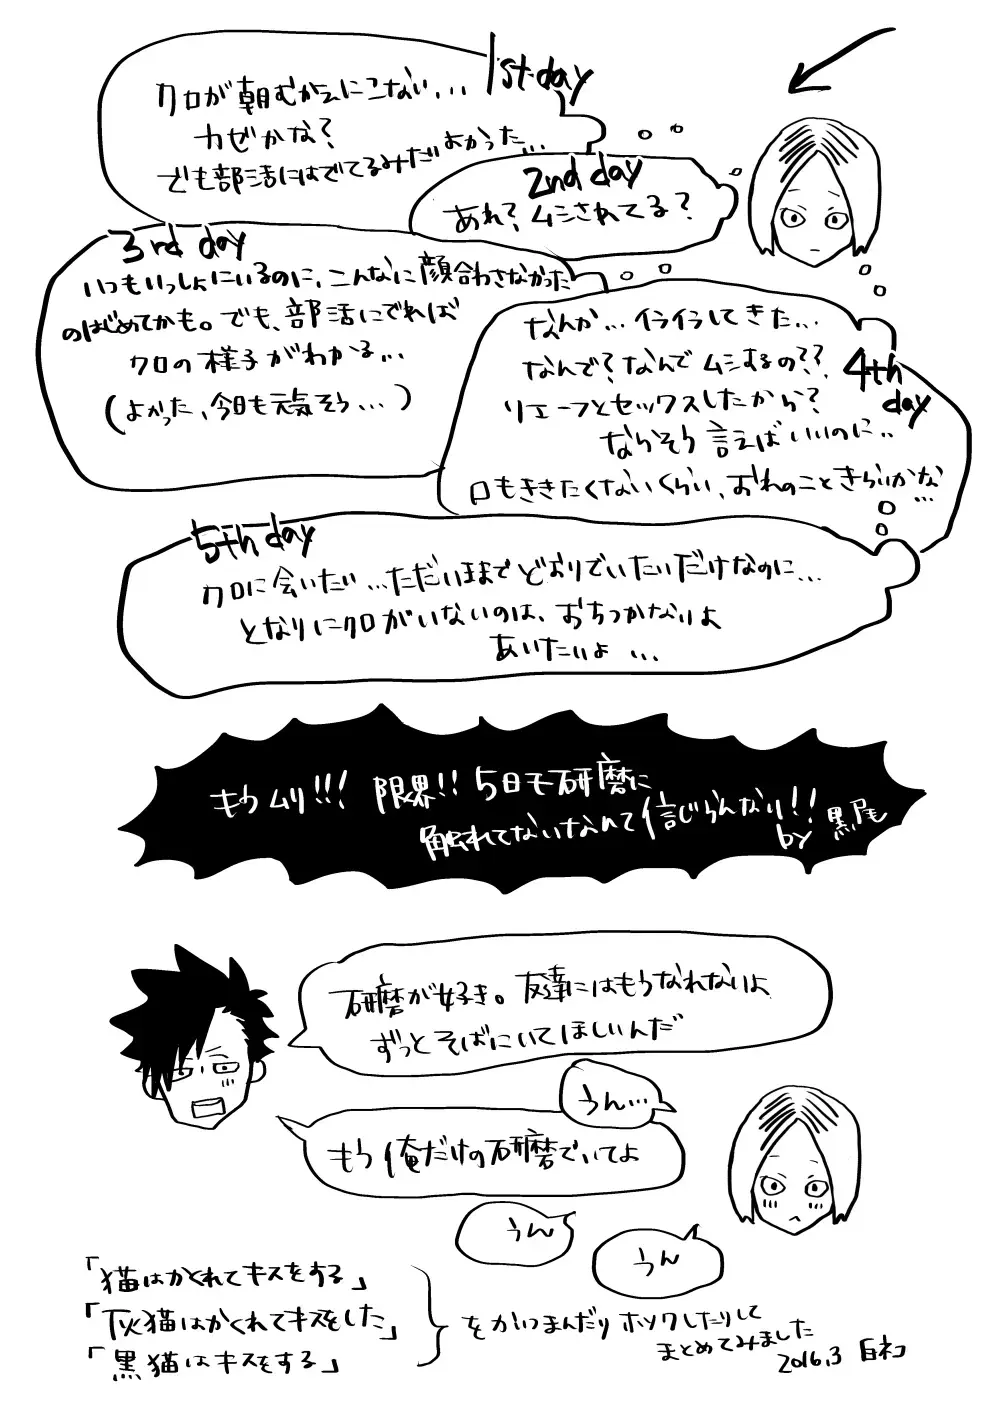 1st day
クロが朝むかえにこない...
カゼかな?
でも部活にはでてるみだいよかった...
2nd day
あれ?ムシされてる?
3rd day
いつもいっしょにいるのに、こんなに顔合わさなかった
のはじめてかも。でも、部活にでれば
クロの様子がわかる...
(よかった、今日も元気そう...)
4th day
なんか...イライラしてきた...
なんで?なんでムシするの??
リエーフとセックスしたから?
ならそう言えばいいのに..
口もききたくないくらい、おれのこときらいかな
...
5th day
クロに会いたい...ただいままでどおりでいたいだけなのに...
となりにクロがいないのは、おちつかないよ
あいたいよ...
もうムリ!!!限界!!5日も研磨に
触れてないなんて信じらんない!!
by黒尾
研磨が好き。友達にはもうなれないよ
ずっとそばにいてほしいんだ
うん...
もう俺だけの研磨でいてよ
うん
うん
「猫はかくれてキスをする」
「灰猫はかくれてキスをした」
「黒猫はキスをする」
をかいつまんだりボツワしたりして
まとめてみました
2016.3 白ネコ